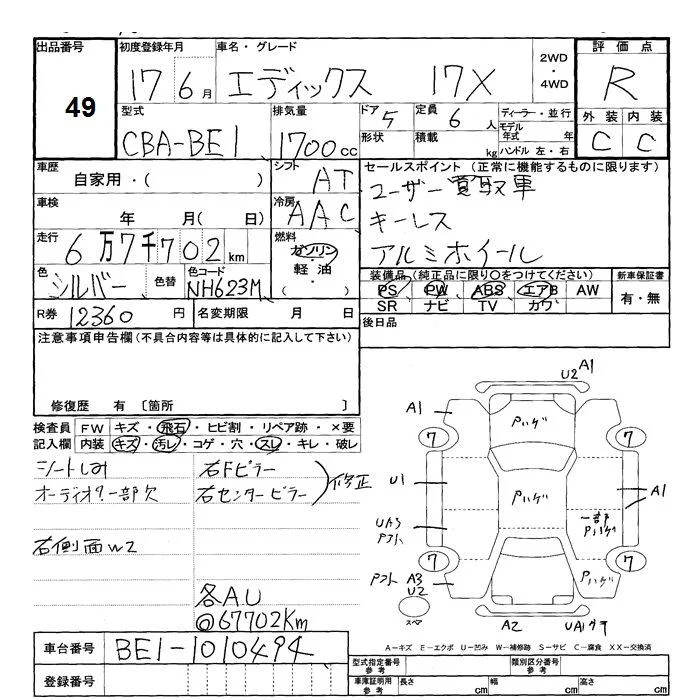 出品番号 初度登録年月 車名・グレード 2WD ・ 4WD 評価点
49 17年 6月 エディックス 17X R
型式 排気量 ドア 定員 ディーラー・並行 外装 内装
CBA-BE1 1700cc 5 6人 モデル年式 年 C C
形状 積載 kg ハンドル 左・右
車歴 シフト セールスポイント (正常に機能するものに限ります)
自家用・( ) AT ユーザー買取車
車検 冷房 キーレス
年 月( 日) AAC アルミホイール
走行 燃料
6万7千702km ガソリン・軽油・( )
色 色替 色コード 装備品(純正品に限り○をつけてください) 新車保証書
シルバー NH623M PS PW ABS エアB AW 有・無
SR ナビ TV カワ
R券 12360円 名変期限 月 日 後日品
注意事項申告欄(不具合内容等は具体的に記入して下さい)
修復歴 有 〔箇所 〕
検査員 FW キズ・飛石・ヒビ割・リペア跡・×要
記入欄 内装 キズ・汚レ・コゲ・穴・スレ・キレ・破レ
シートしみ 右Fピラー
オーディオカバー一部欠 右センターピラー 修正
右側面W2
各AU
◎67702Km
U2 A1
A1 Pハゲ
7 7
U1 Pハゲ A1
UA3 一部Pハゲ
Pフト
7 7
Pフト A3 U2 Pハゲ
スペア A2 UA1
車台番号 BE1-1010494
登録番号
A-キズ E-エクボ U-凹み W-補修跡 S-サビ C-腐食 XX-交換済
型式指定番号 参考 類別区分番号 参考
車庫証明用 参考 長さ cm 幅 cm 高さ cm